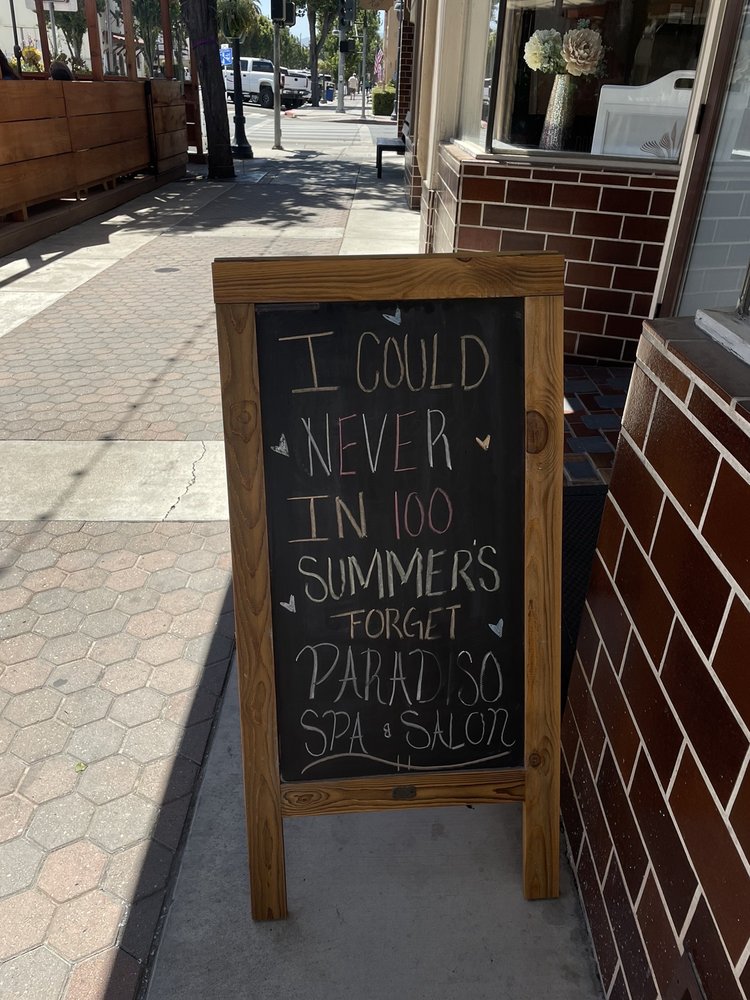 I COULD
NEVER
IN 100
SUMMER'S
FORGET
PARADISO
SPA & SALON